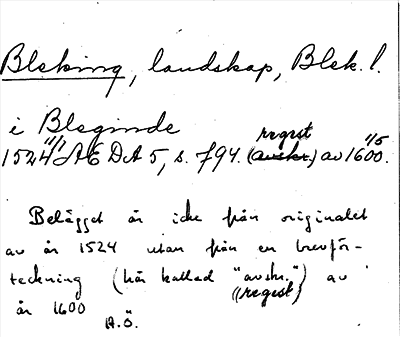 Bleking, landskap, Blek. l.
i Bleginde
1524 11/1 AEDA 5, s. 794. (avskr.) regest av 1600. 1/5
Belägget är icke från originalet
av år 1524 utan från en brevför-
teckning (här kallad "avskr.") av
(regest)
år 1600
A.Ö.